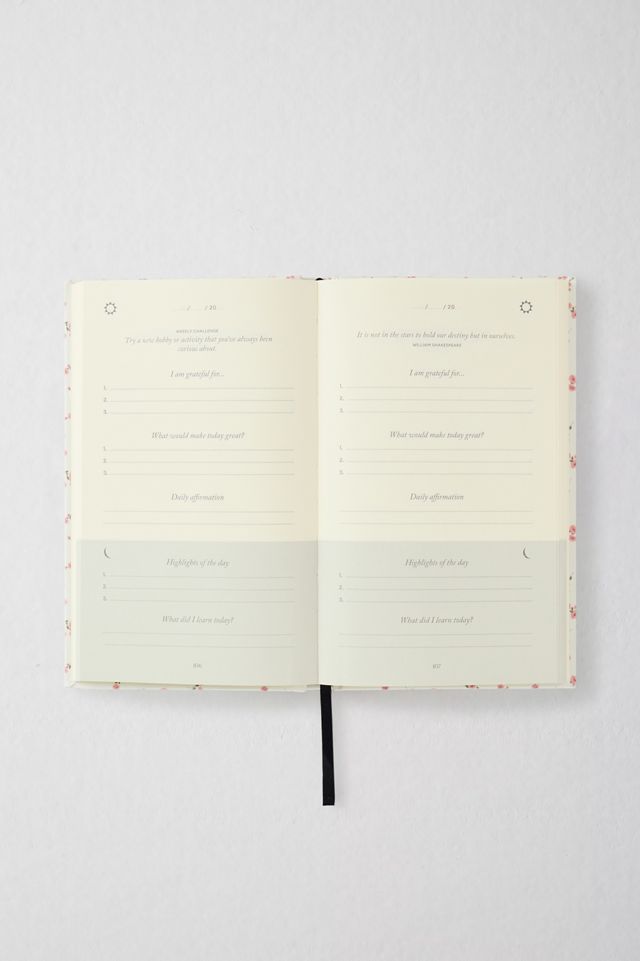 ..... / ..... / 20
WEEKLY CHALLENGE
Try a new hobby or activity that you've always been
curious about.
I am grateful for...
1.
2.
3.
What would make today great?
1.
2.
3.
Daily affirmation
Highlights of the day
1.
2.
3.
What did I learn today?
836
..... / ..... / 20
It is not in the stars to hold our destiny but in ourselves.
WILLIAM SHAKESPEARE
I am grateful for...
1.
2.
3.
What would make today great?
1.
2.
3.
Daily affirmation
Highlights of the day
1.
2.
3.
What did I learn today?
837